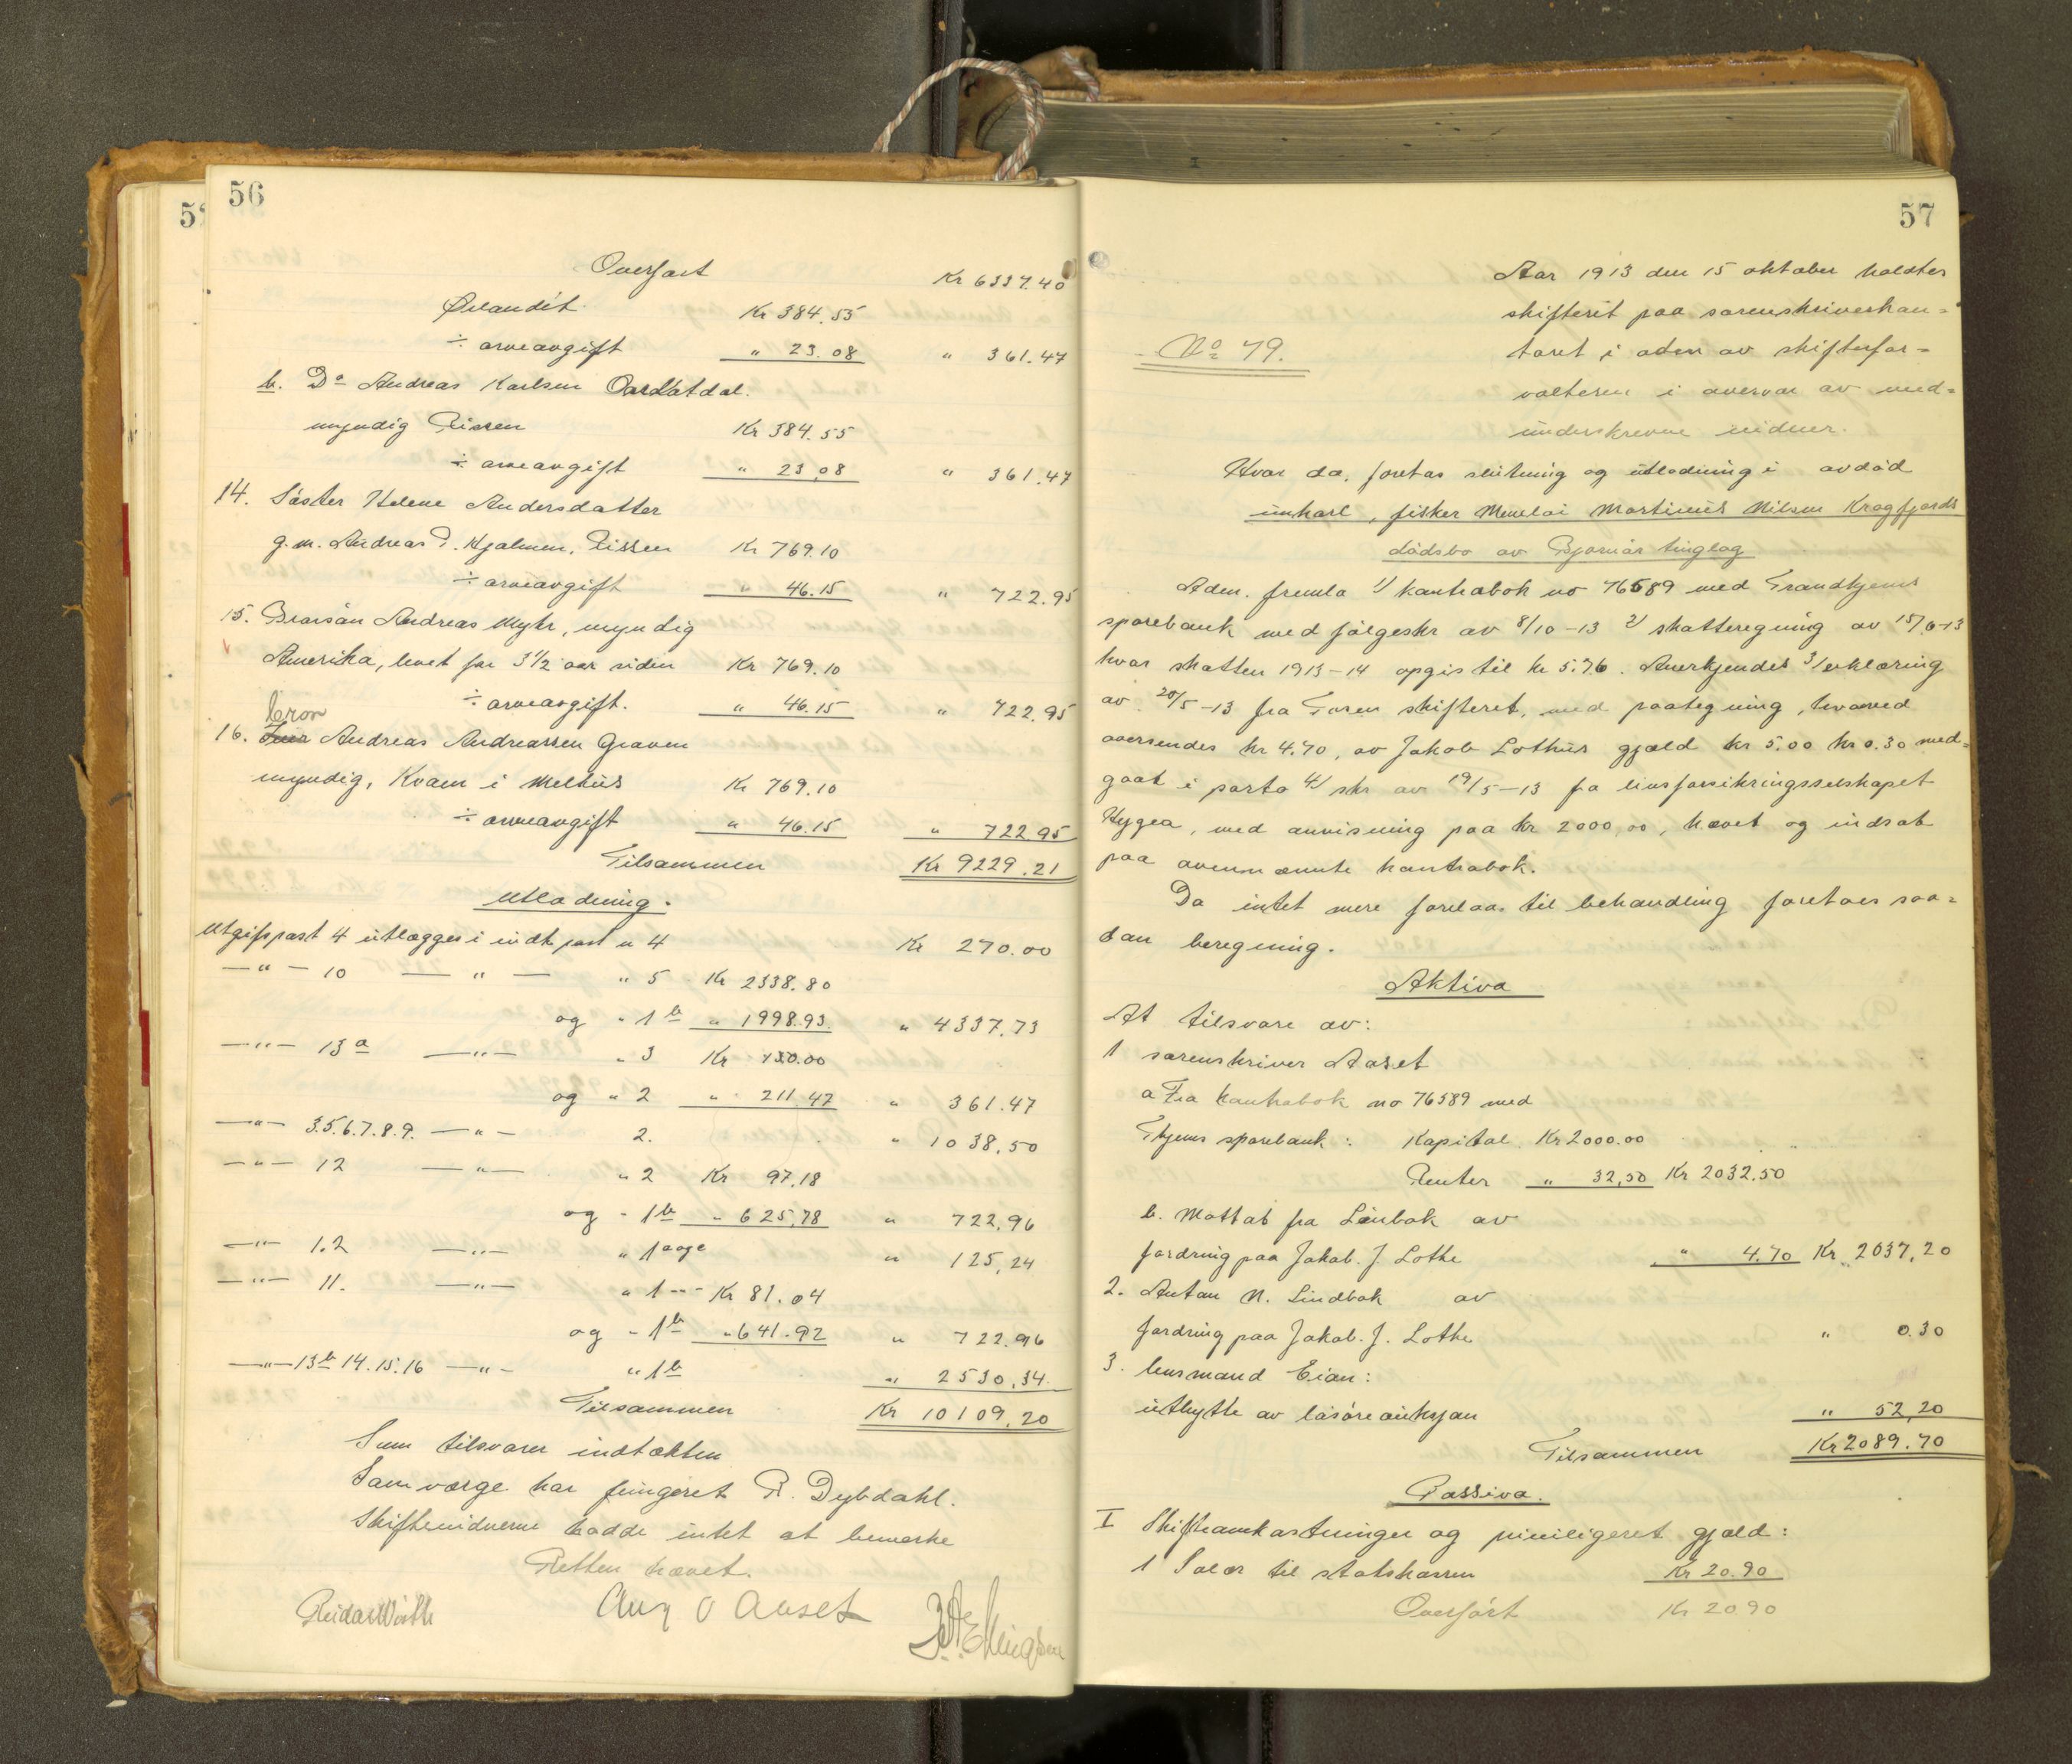 56
Overført Kr 6337.40
Ørlandet Kr 384.55
÷ arveavgift " 23.08 " 361.47
b. Do Andreas Karlsen Aardalsdal.
myndig Rissen Kr 384.55
÷ arveavgift " 23,08 " 361.47
14. Søster Helene Andersdatter
g.m. Andreas P. Hjalmen, Rissen Kr 769.10
÷ arveavgift " 46.15 " 722.95
15. Brorsøn Andreas Myhr, myndig
Amerika, levet for 3 1/2 aar siden Kr 769.10
÷ arveavgift. " 46.15 " 722.95
bror
16. Andreas Andreassen Graven
myndig, Kvam i Melhus Kr 769.10
÷ arveavgift " 46.15 " 722.95
Tilsammen Kr 9229.21
Utlodning.
Utgifspost 4 utlægges i indt. post n 4 Kr 270.00
—"— 10 —"— " 5 Kr 2338.80
og " 1b " 1998.93. " 4337,73
—"— 13a —"— " 3 Kr 150.00
og " 2 " 211.47 " 361.47
—"— 3.5.6.7.8.9. —"— 2. " 1038,50
—"— 12 —"— " 2 Kr 97.18
og " 1b " 625,78 " 722,96
—"— 1.2 —"— " 1a og c " 125,24
—"— 11. —"— " 1 -"- Kr 81.04
og " 1b " 641.92 " 722.96
—"— 13b 14.15.16 —"— " 1b " 2530.34
Tilsammen Kr 10109,20
Som tilsvarer indtækten
Som værge har fungeret P. Dybdahl.
Skiftevidnerne hadde intet at bemerke
Retten hævet.
Aug O Aaset
57
Aar 1913 den 15 oktober holdtes
skifteret paa sorenskriverkon=
No 79. toret i aden av skiftefor=
valteren i overvær av med=
underskrevne vidner.
Hvor da, foretas slutning og utlodning i avdød
ungkarl, fisker Menelai Martinus Nilsen Kragfjords
dødsbo av Bjørnør tinglag
Adm. fremla 1/ kontrabok no 76589 med Trondhjems
sparebank med følgeskr av 8/10-13 2/ skatteregning av 15/6-13
hvor skatten 1913-14 opgis til kr 5.76. Anerkjendes 3/ erklæring
av 20/5-13 fra Fosen skifteret, med paategning, hvorved
oversendes kr 4.70, av Jakob Lothus gjæld kr 5.00 kr 0.30 med=
gaat i porto 4/ skr av 19/5-13 fra livsforsikringsselskapet
Hygea, med anvisning paa kr 2000,00, hævet og indsat
paa ovennævnte kontrabok.
Da intet mere forelaa til behandling foretoes saa=
dan beregning.
Aktiva
At tilsvare av:
1 sorenskriver Aaset
a Fra kontrabok no 76589 med
Thjems sparebank: Kapital Kr 2000.00
Renter " 32,50 Kr 2032.50
b. Mottat fra Linbak av
fordring paa Jakob. J. Lothe " 4.70 Kr 2037,20
2. Anton N. Lindbak av
fordring paa Jakob. J. Lothe " 0.30
3. Lensmand Eian:
utbytte av løsøreauksjon " 52,20
Tilsammen Kr 2089.70
Passiva.
I Skifteomkostninger og priviligeret gjæld:
1 Salær til statskassen Kr 20.90
Overført Kr 20.90